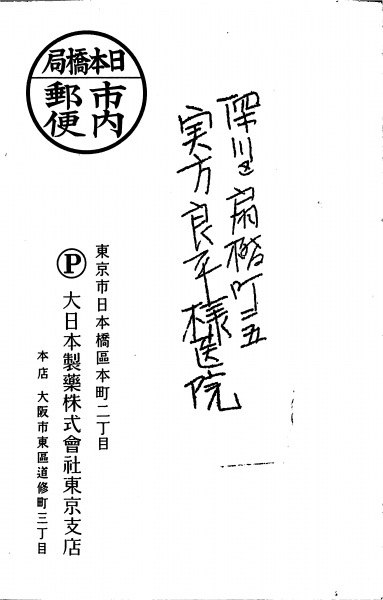 深川区扇橋町二ノ五
実方良平様医院
日本橋局
市内
郵便
東京市日本橋區本町二丁目
Ⓟ 大日本製藥株式會社東京支店
本店 大阪市東區道修町三丁目